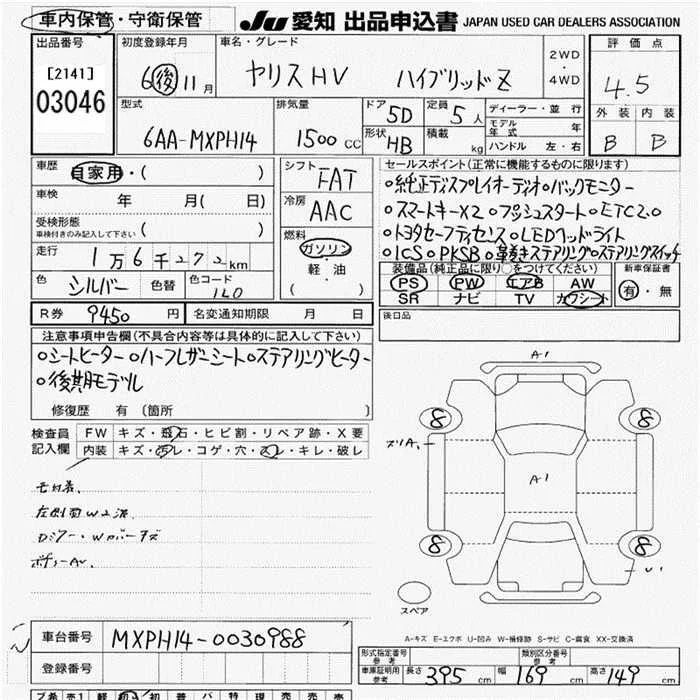 車内保管・守衛保管 JU 愛知 出品申込書 JAPAN USED CAR DEALERS ASSOCIATION
出品番号 初度登録年月 車名・グレード 2WD 評価点
[2141] 6後11月 ヤリスHV ハイブリッドZ ・ 4.5
03046 4WD
型式 排気量 ドア 5D 定員 5人 ディーラー・並行 外装 内装
6AA-MXPH14 1500CC 形状 HB 積載 kg モデル年式 年 B B
ハンドル 左・右
車歴 自家用・( ) シフト FAT セールスポイント(正常に機能するものに限ります)
車検 年 月( 日) 冷房 AAC ○純正ディスプレイオーディオ○バックモニター
受検形態 ( ) ○スマートキーX2○プッシュスタート○ETC2.0
車検付きのみ記入して下さい 燃料 ○トヨタセーフティセンス○LEDヘッドライト
走行 1万6千272km ガソリン ○ICS○PKSB○革巻きステアリング○ステアリングスイッチ
・ 装備品(純正品に限り○をつけてください) 新車保証書
色 シルバー 色替 色コード 1L0 軽・油 PS PW エアB AW 有・無
( ) SR ナビ TV カワシート
R券 9450円 名変通知期限 月 日 後日品
注意事項申告欄(不具合内容等は具体的に記入して下さい)
○シートヒーター○ハーフレザーシート○ステアリングヒーター
○後期モデル
修復歴 有 (箇所 )
検査員 FW キズ・飛石・ヒビ割・リペア跡・X要
記入欄 内装 キズ・汚レ・コゲ・穴・スレ・キレ・破レ
A1
8 8
ズリA
A1
8 8
U1
スペア
A-キズ E-エクボ U-凹み W-補修跡 S-サビ C-腐食 XX-交換済
車台番号 MXPH14-0030988
登録番号
形式指定番号 参考 類別区分番号 参考
車庫証明用 参考 長さ 395cm 幅 169cm 高さ 149cm